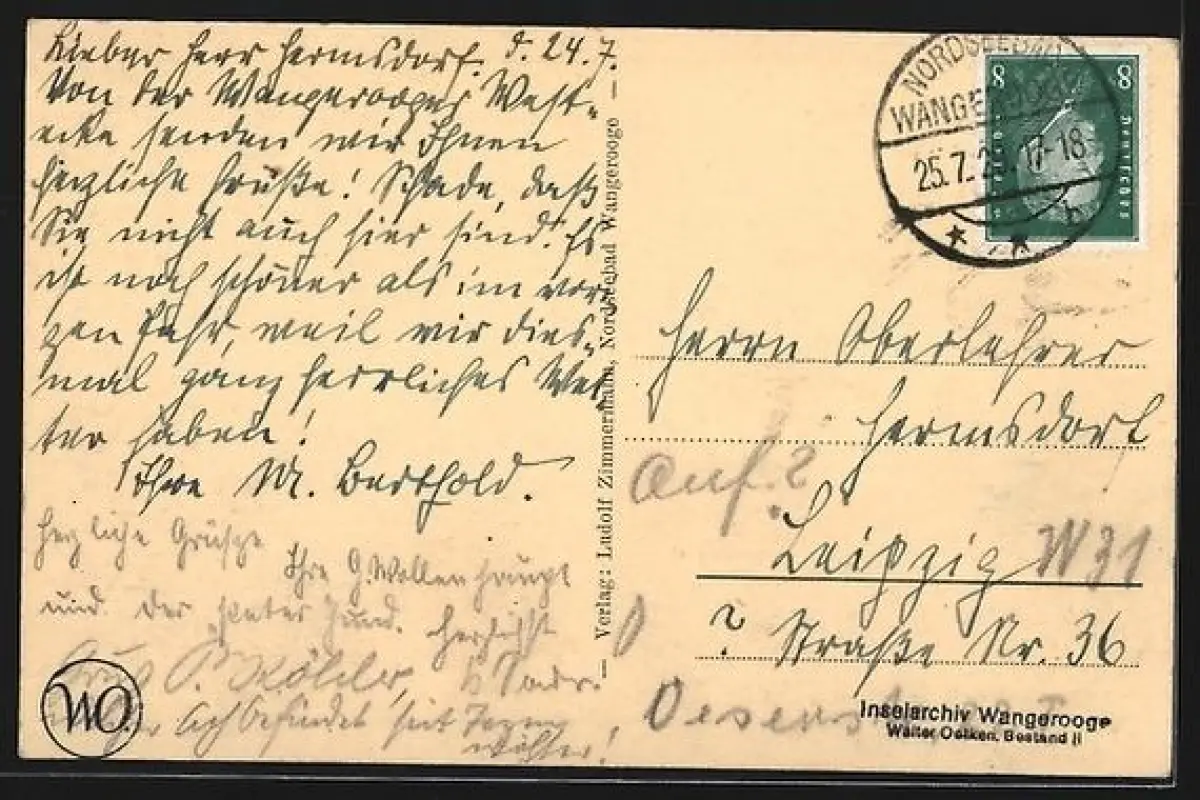 Lieber Herr Hermsdorf. d. 24.7.
Von der Wangerooger West-
ecke senden wir Ihnen
herzliche Grüße! Schade, daß
Sie nicht auch hier sind! Es
ist noch schöner als im vori-
gen Jahr, weil wir dies-
mal ganz herrliches Wet-
ter haben!
Ihre M. Berthold.
Herzliche Grüsze
Ihre G. Wollenhaupt
und der
WO
Verlag: Ludolf Zimmermann, Nordseebad Wangerooge
NORDSEEBAD
WANGEROOGE
25.7.2 17-18
b
8 8
Deutsches Reich
Herrn Oberlehrer
Hermsdorf
Leipzig W31
? Straße Nr. 36
Inselarchiv Wangerooge
Walter Oetken, Bestand II